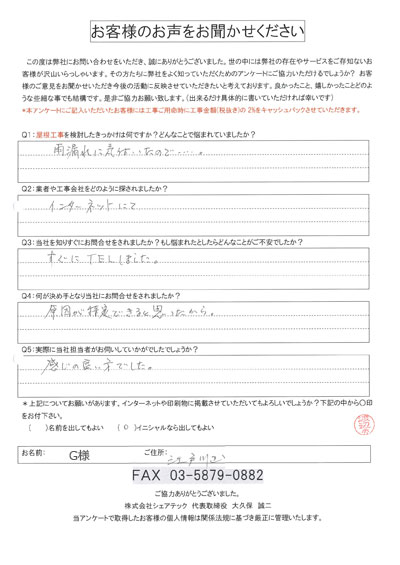 お客様のお声をお聞かせください
この度は弊社にお問い合わせをいただき、誠にありがとうございました。世の中には弊社の存在やサービスをご存知ないお
客様が沢山いらっしゃいます。その方たちに弊社をよく知っていただくためのアンケートにご協力いただけるでしょうか？ お客
様のご意見をお聞かせいただき今後の活動に反映させていただきたいと考えております。良かったこと、嬉しかったことどのよ
うな些細な事でも結構です。是非ご協力お願い致します。（出来るだけ具体的に書いていただければ幸いです）
*本アンケートにご記入いただいたお客様には工事ご用命時に工事金額(税抜き)の 2%をキャッシュバックさせていただきます。
Q1：屋根工事を検討したきっかけは何ですか？どんなことで悩まれていましたか？
雨漏れに気付いたので・・・・。
Q2：業者や工事会社をどのように探されましたか？
インターネットにて
Q3：当社を知りすぐにお問合せをされましたか？もし悩まれたとしたらどんなことがご不安でしたか？
すぐにTELしました。
Q4：何が決め手となり当社にお問合せをされましたか？
原因が特定できると思ったから。
Q5：実際に当社担当者がお伺いしていかがでしたでしょうか？
感じの良い方でした。
＊上記についてお願いがあります。インターネットや印刷物に掲載させていただいてもよろしいでしょうか？下記の中から〇印
をお付下さい。
（　）名前を出してもよい　（ O ）イニシャルなら出してもよい
お名前： G様 ご住所： 江戸川区
FAX 03-5879-0882
ご協力ありがとうございました。
株式会社シェアテック 代表取締役 大久保 誠二
当アンケートで取得したお客様の個人情報は関係法規に基づき厳正に管理いたします。